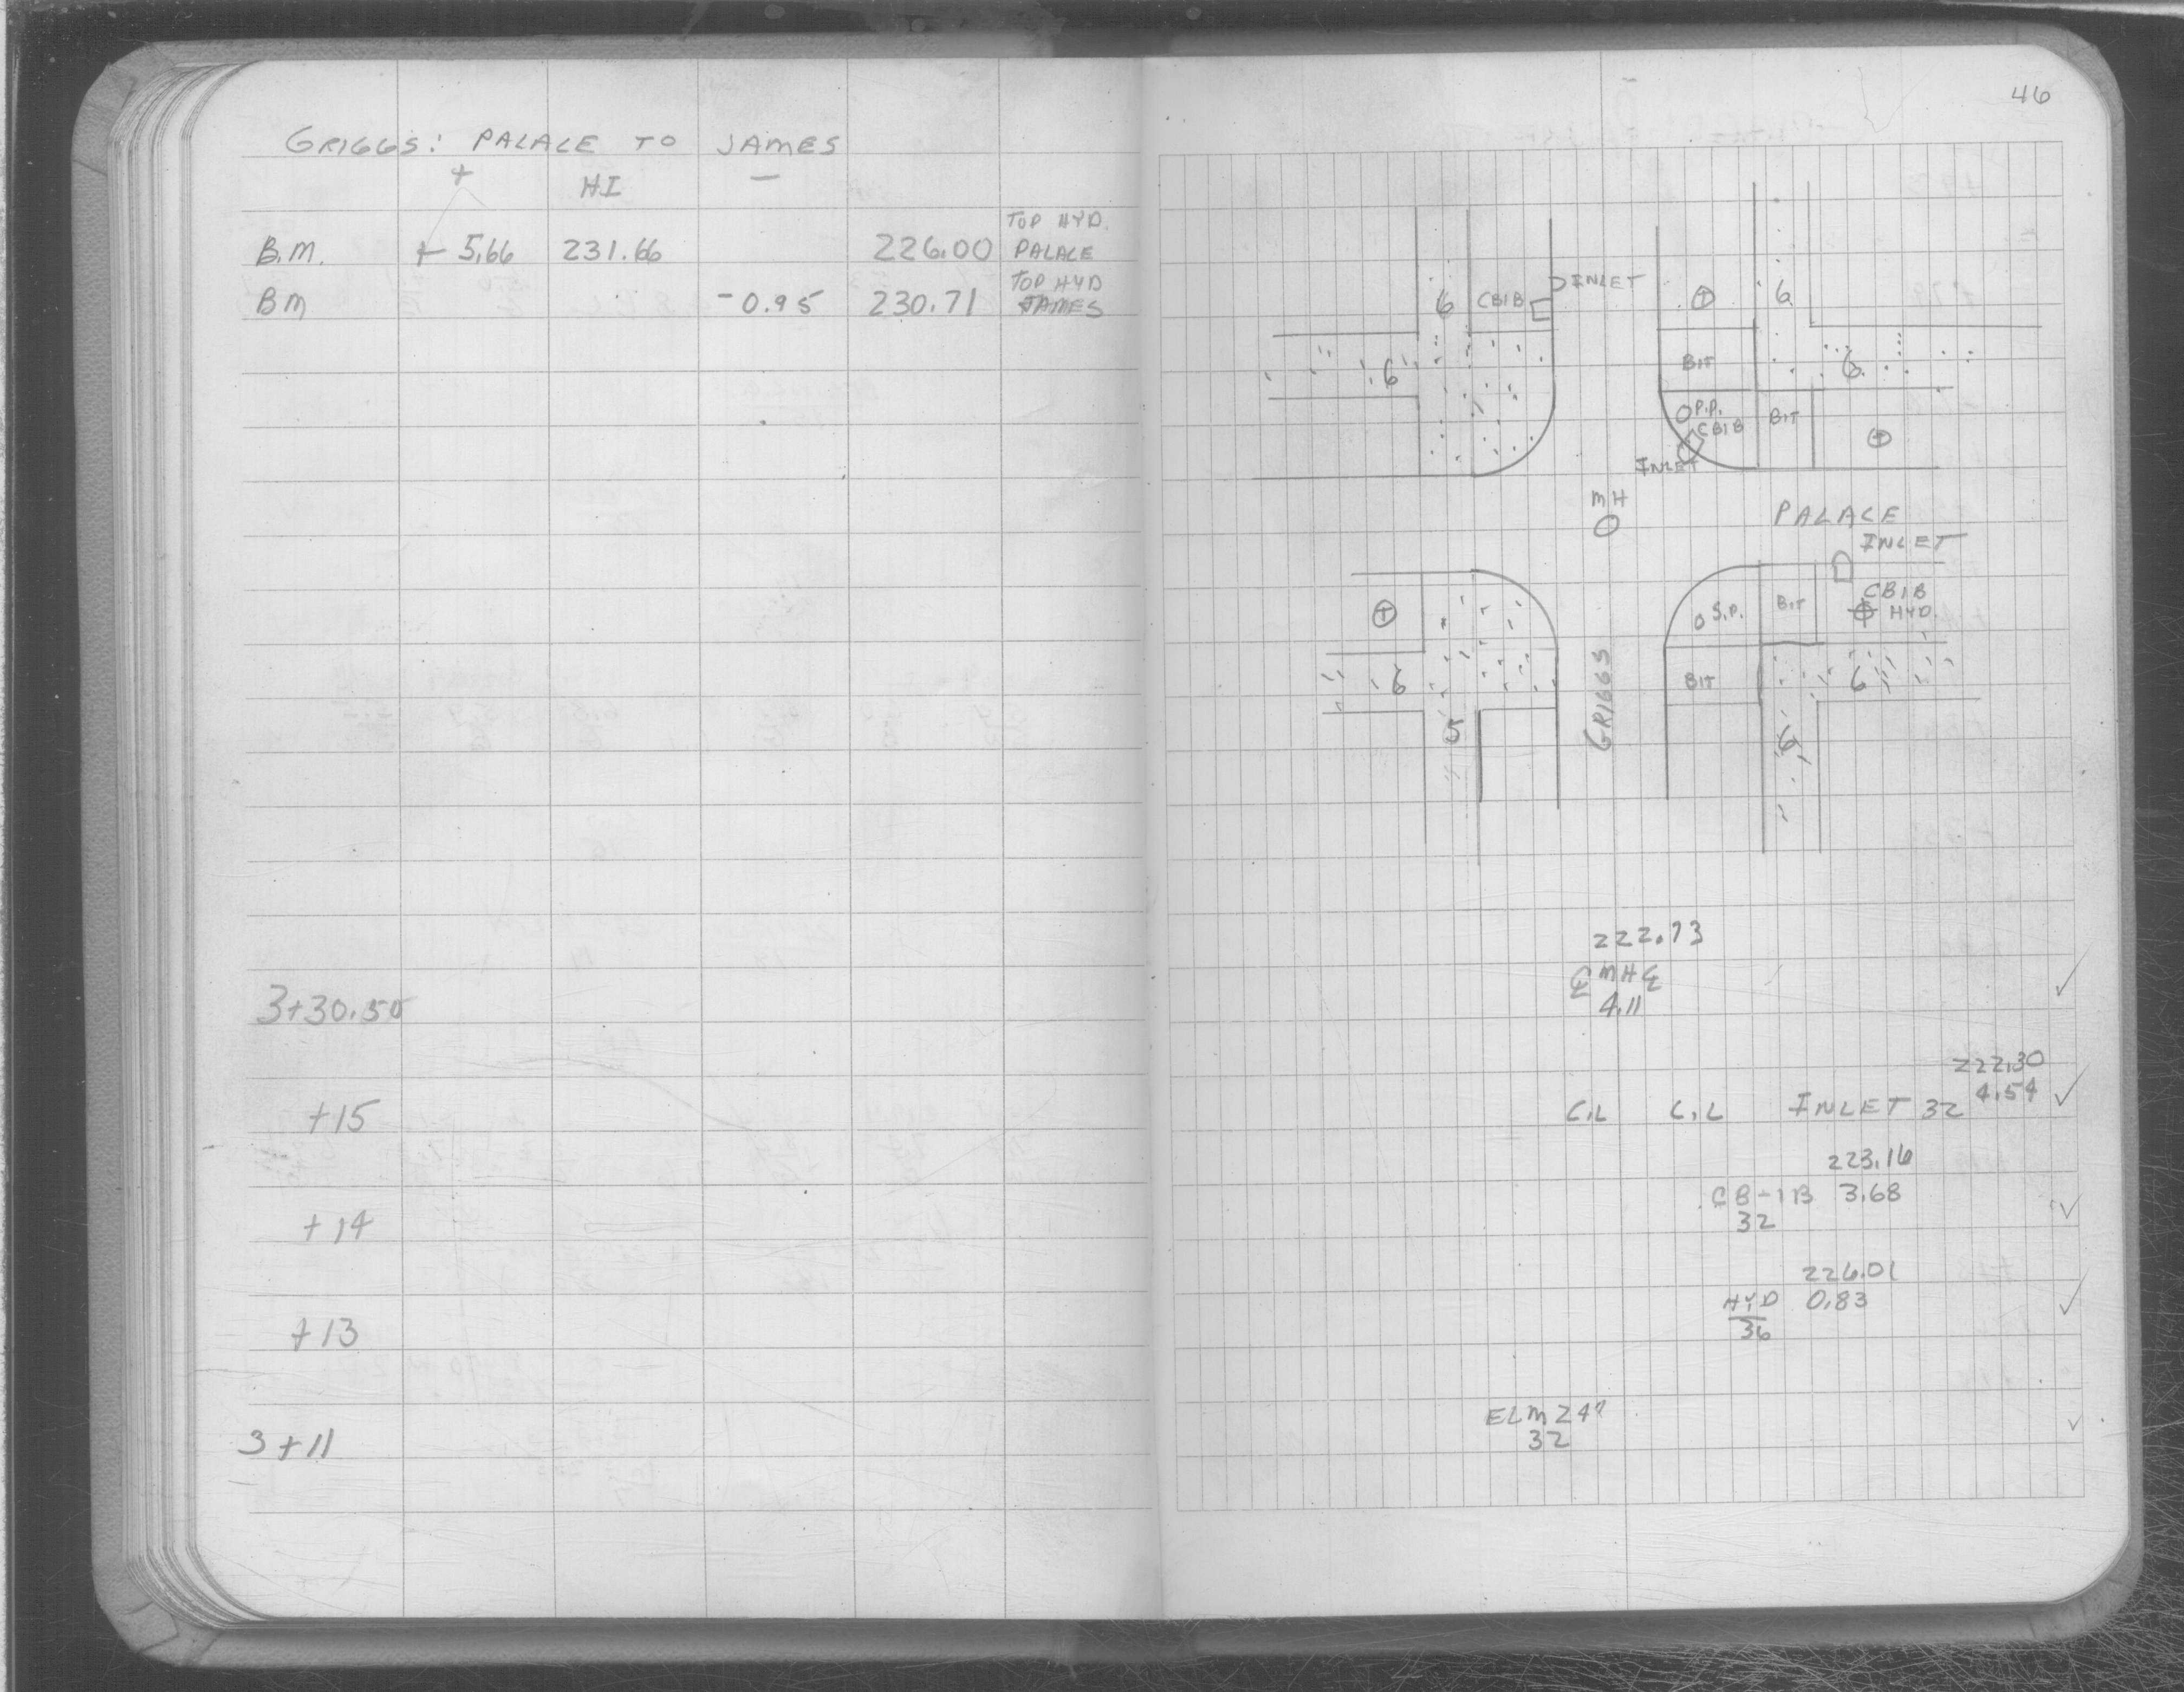 GRIGGS: PALACE TO JAMES
+ HI -
TOP HYD.
B.M. + 5.66 231.66 226.00 PALACE
TOP HYD
BM -0.95 230.71 JAMES
3+30.50
+15
+14
+13
3+11
46
6 CB1B INLET
6
6
BIT
6
P.P.
CB1B
BIT
INLET
MH
PALACE
INLET
S.P.
BIT
CB1B
HYD.
6
5
GRIGGS
BIT
6
6
222.73
℄ MH ℄
4.11
222.30
4.54
C.L C.L INLET 32
223.16
CB-1B 3.68
32
226.01
HYD 0.83
36
ELM 24"
32